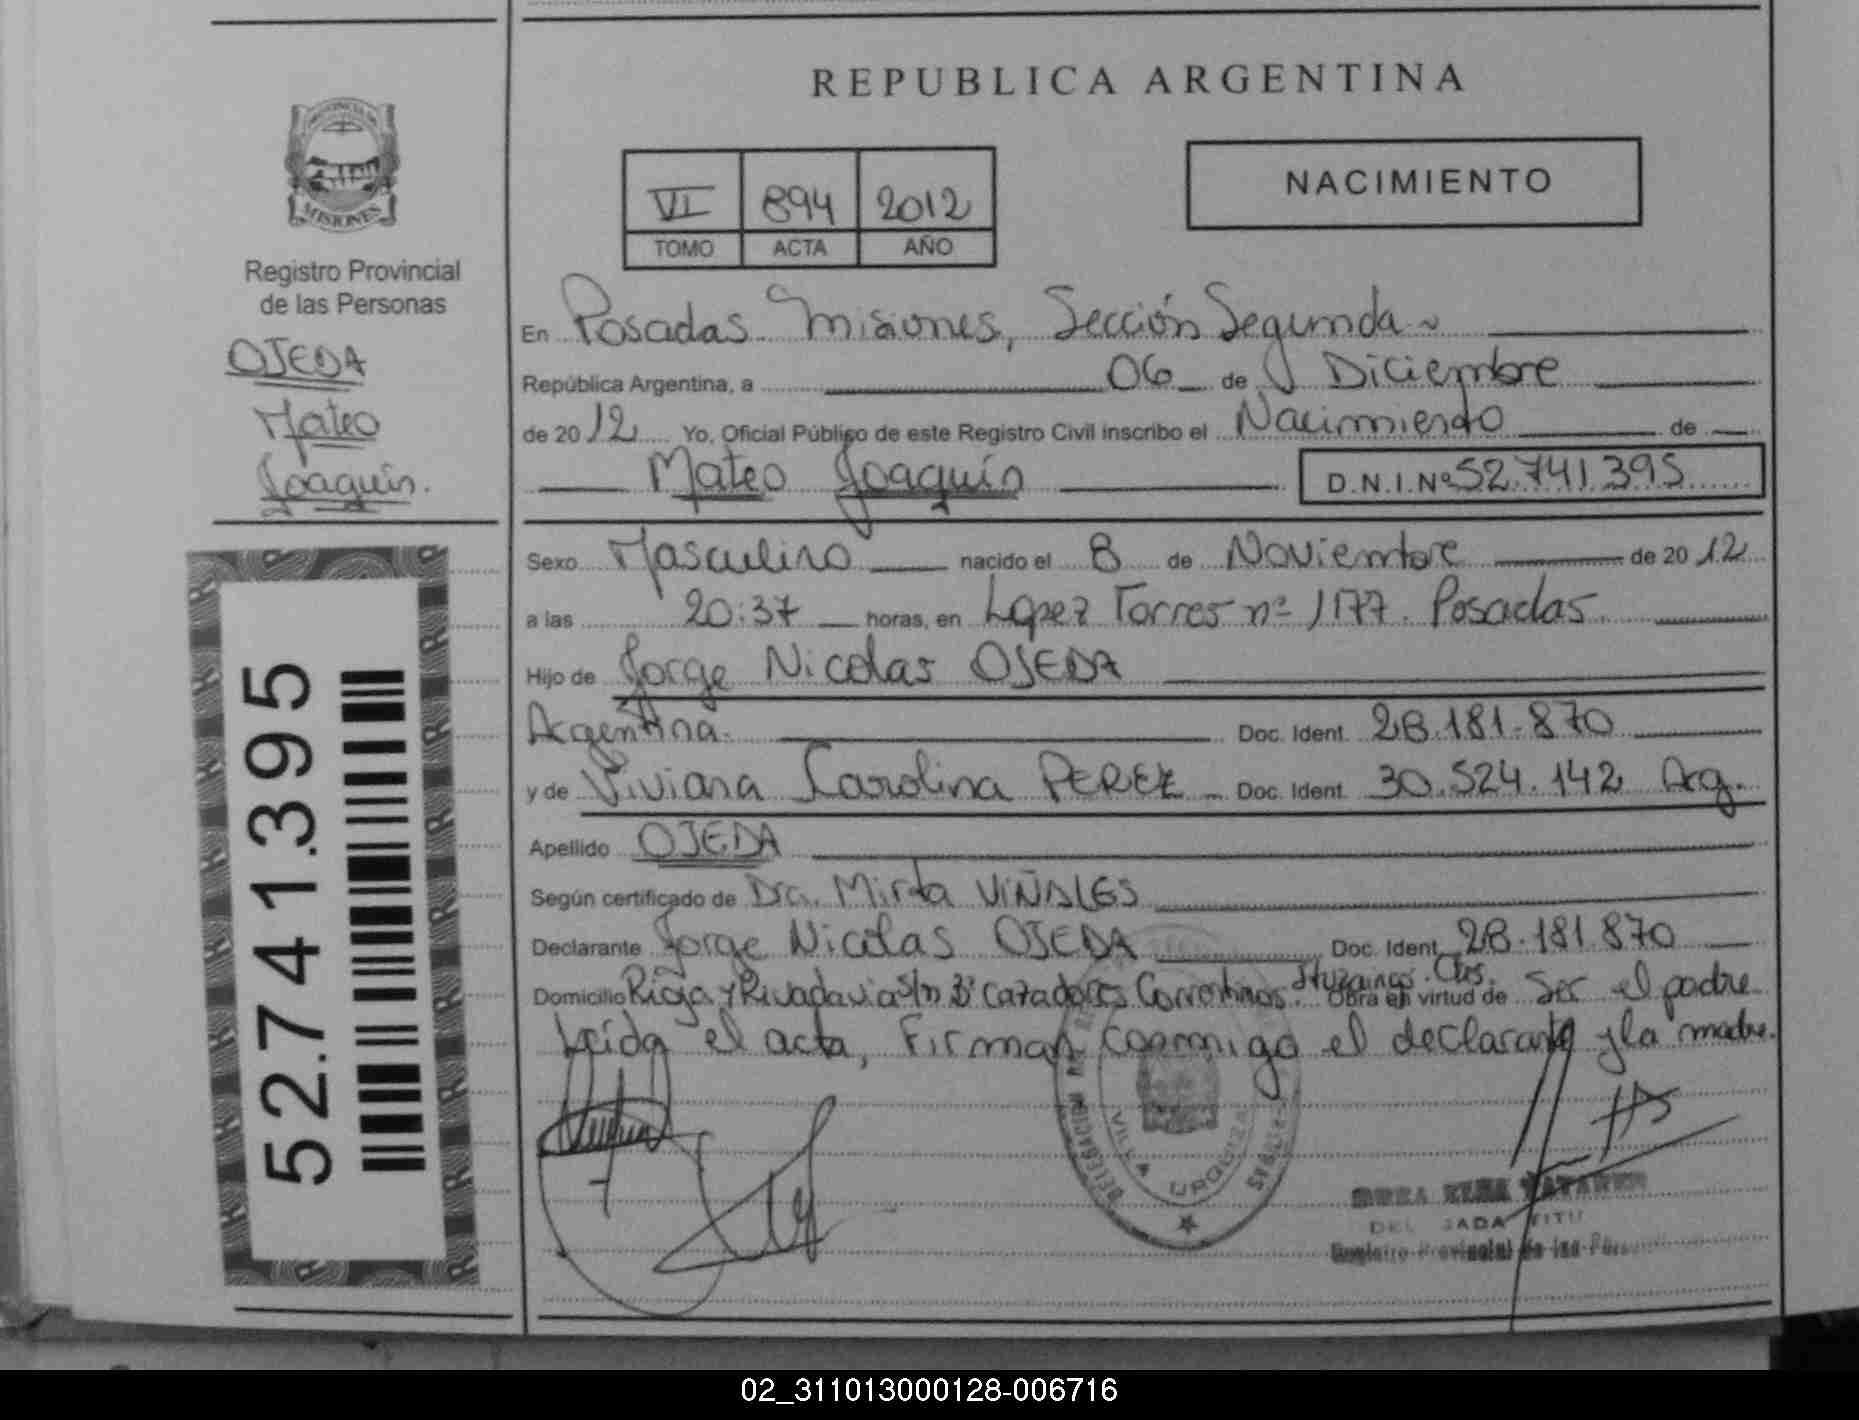 REPUBLICA ARGENTINA
PROVINCIA DE
MISIONES
Registro Provincial
de las Personas
OJEDA
Mateo
Joaquín.
52.741.395
VI 894 2012
TOMO ACTA AÑO
NACIMIENTO
En Posadas Misiones, Sección Segunda
República Argentina, a 06 de Diciembre
de 2012 Yo, Oficial Público de este Registro Civil inscribo el Nacimiento de
Mateo Joaquín D.N.I.Nº 52.741.395
Sexo Masculino nacido el 8 de Noviembre de 2012
a las 20:37 horas, en Lopez Torres nº 1177. Posadas.
Hijo de Jorge Nicolas OJEDA
Argentina. Doc. Ident. 28.181.870
y de Viviana Carolina PEREZ Doc. Ident. 30.524.142 Arg.
Apellido OJEDA
Según certificado de Dra. Mirta VIÑALES
Declarante Jorge Nicolas OJEDA Doc. Ident. 28.181.870
Domicilio Rioja y Rivadavia s/n Bº Cazadores Correntinos. Ituzaingo. Ctes. Obra en virtud de Ser el padre
Leída el acta, Firman conmigo el declarante y la madre.
DELEGACION
VILLA URQUIZA
Registro Provincial de las
02_311013000128-006716